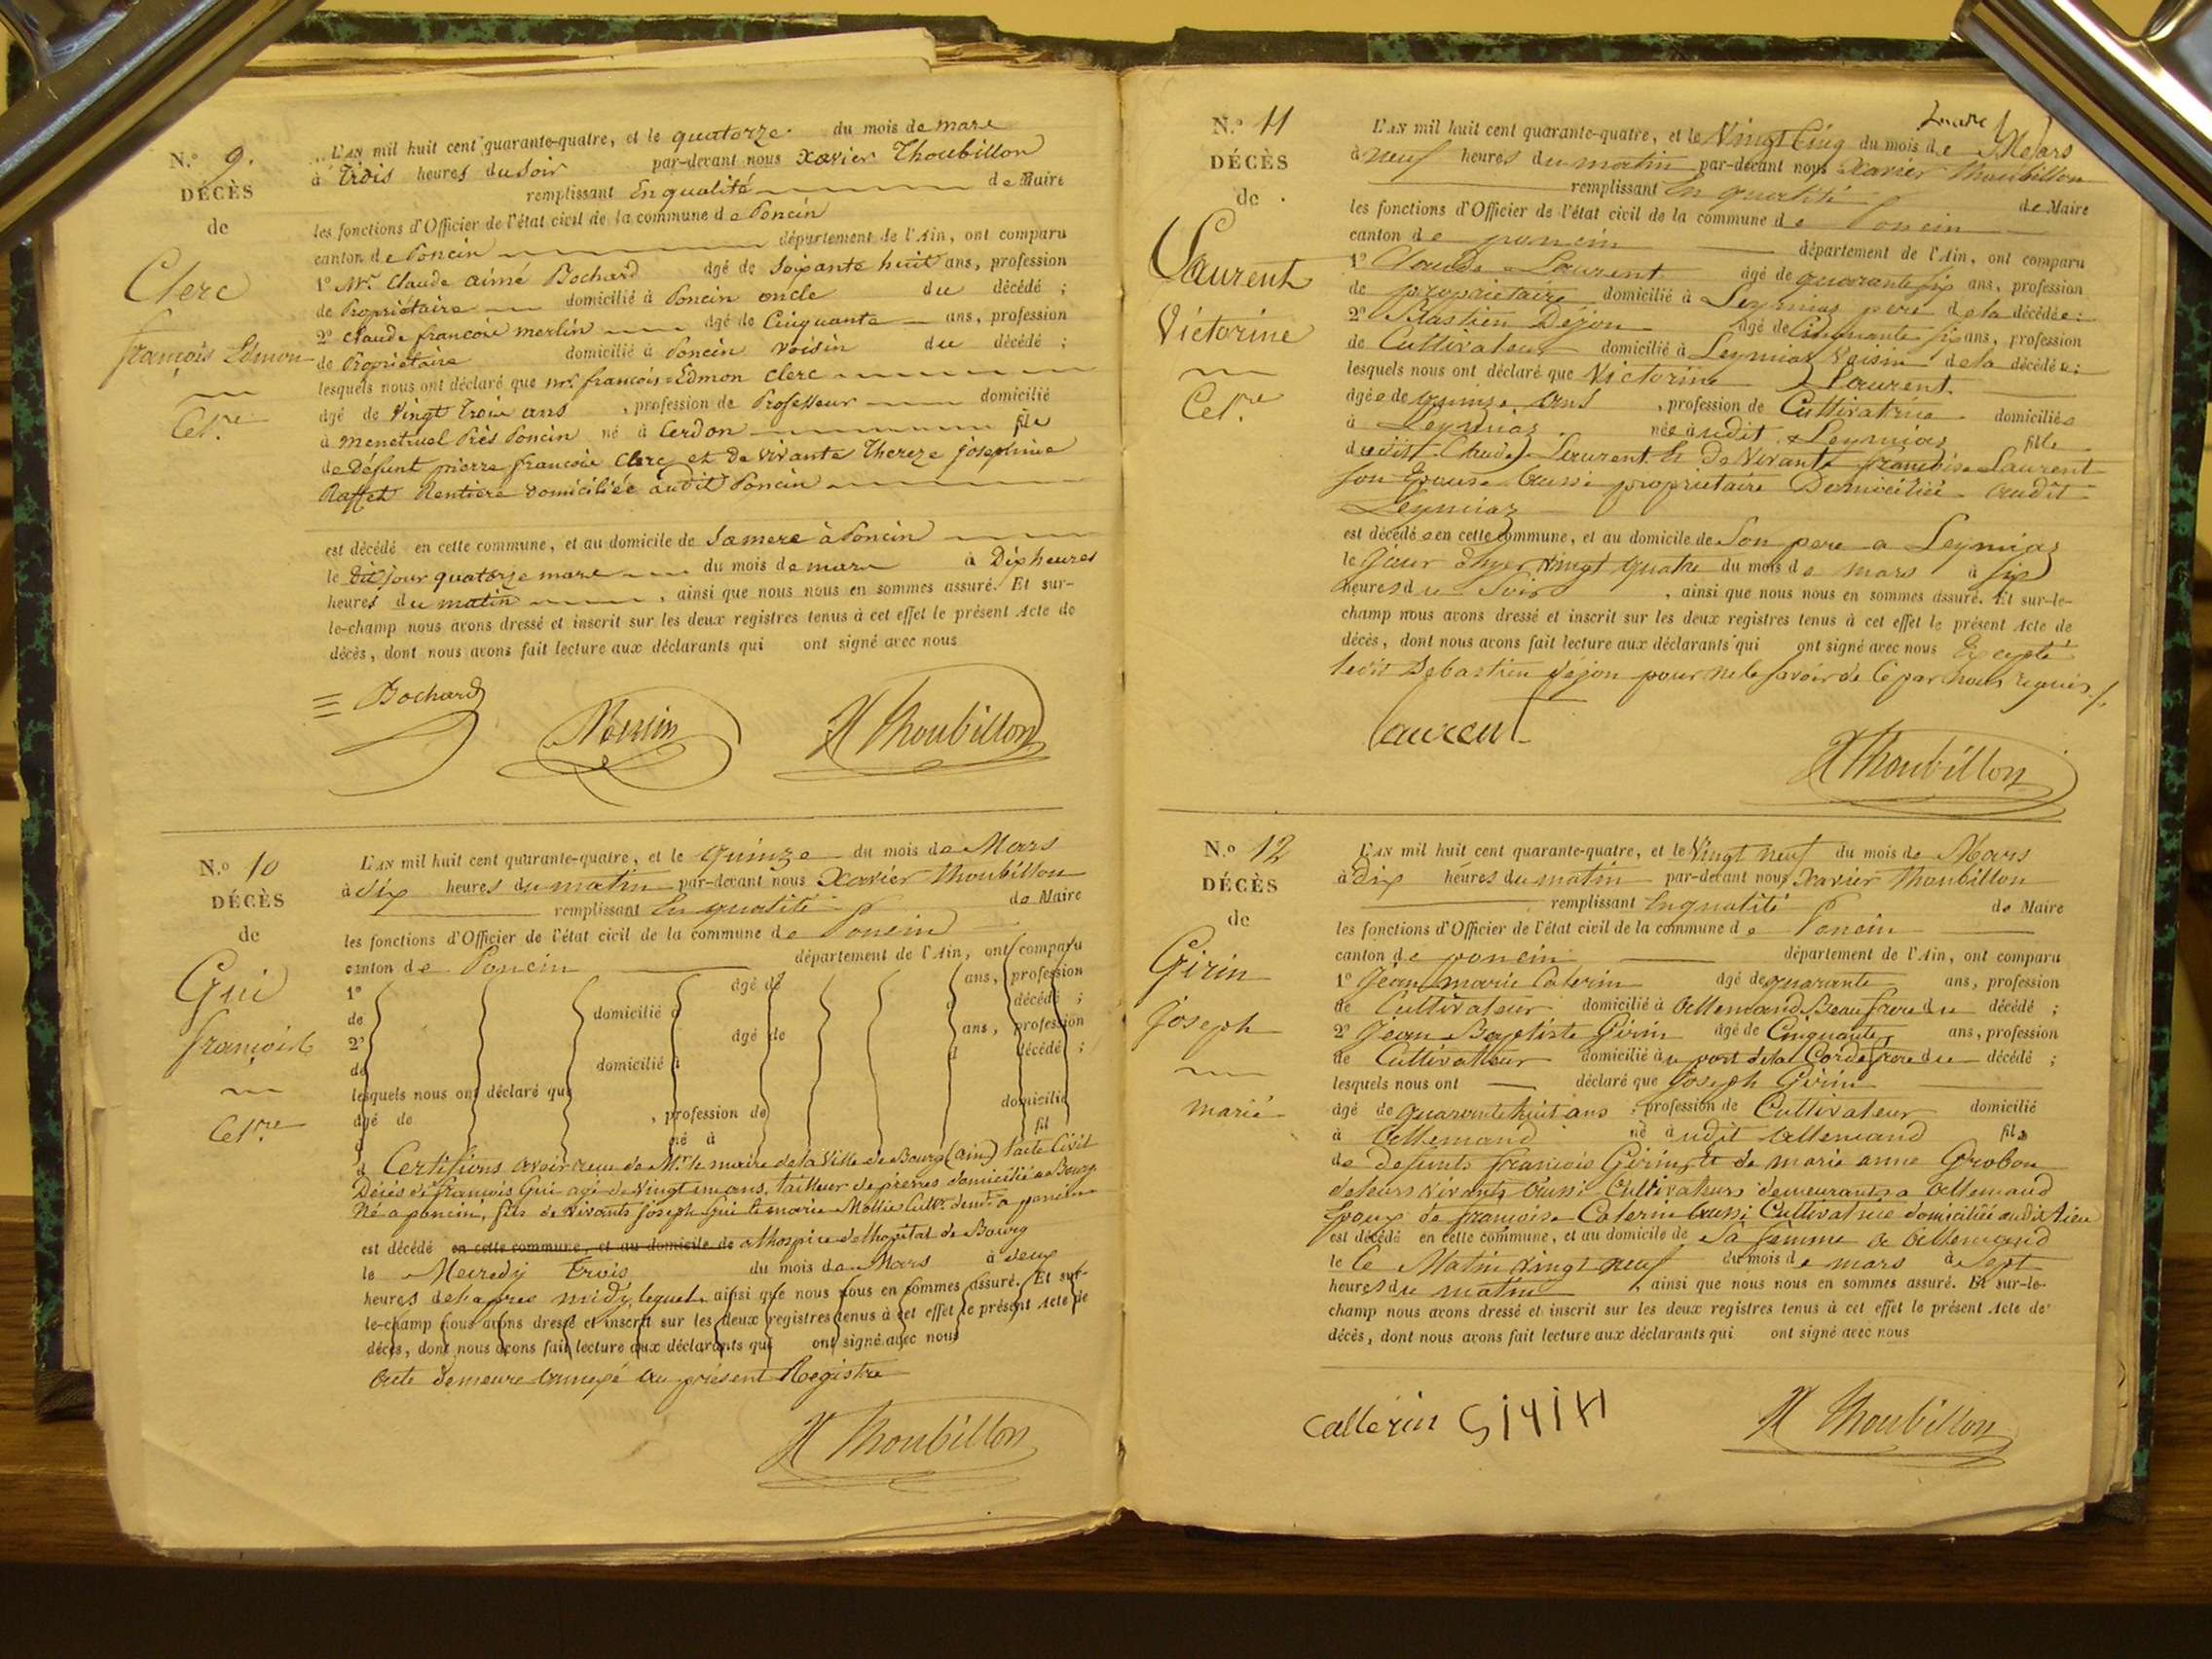 N.º 9.
DÉCÈS
de
Clerc
françois Edmon
Cel.re
L'AN mil huit cent quarante-quatre, et le quatorze du mois de mars
à Trois heures du soir par-devant nous Xavier Thoubillon
remplissant En qualité de Maire
les fonctions d'Officier de l'état civil de la commune de Poncin
canton de Poncin département de l'Ain, ont comparu
1º Mr. Claude aimé Bochard âgé de Soixante huit ans, profession
de Propriétaire domicilié à Poncin oncle du décédé ;
2º Claude françois merlin âgé de Cinquante ans, profession
de Propriétaire domicilié à Poncin voisin du décédé ;
lesquels nous ont déclaré que mr. françois Edmon Clerc
âgé de Vingt Trois ans , profession de Professeur domicilié
à menetruel Près Poncin né à Cerdon fils
de Défunt pierre françois Clerc et de vivante Thereze josephine
Raffet Rentière domiciliée audit Poncin
est décédé en cette commune, et au domicile de Sa mere à Poncin
le dit jour quatorze mars du mois de mars à Dix heures
heures du matin , ainsi que nous nous en sommes assuré. Et sur-
le-champ nous avons dressé et inscrit sur les deux registres tenus à cet effet le présent Acte de
décès, dont nous avons fait lecture aux déclarants qui ont signé avec nous
Bochard
X Thoubillon
N.º 10
DÉCÈS
de
Gui
françois
Cel.re
L'AN mil huit cent quarante-quatre, et le Quinze du mois de Mars
à dix heures du matin par-devant nous Xavier Thoubillon
remplissant En qualité de Maire
les fonctions d'Officier de l'état civil de la commune de Poncin
canton de Poncin département de l'Ain, ont comparu
1º âgé de ans, profession
de domicilié à d décédé ;
2º âgé de ans, profession
de domicilié à d décédé ;
lesquels nous ont déclaré que
âgé de , profession de domicilié
à né à fil
d Certifions avoir reçu de Mr. le maire de la Ville de Bourg (ain) l'acte Civil
Décès de françois Gui agé de Vingt un ans, tailleur de pierres domicilié a Bourg
Né a poncin, fils de vivants joseph Gui et marie Mollie Cultrs. demts. a poncin
est décédé en cette commune, et au domicile de a l'hospice de l'hopital de Bourg
le Mercredy trois du mois de Mars à deux
heures de l'apres midy, lequel ainsi que nous nous en sommes assuré. Et sur-
le-champ nous avons dressé et inscrit sur les deux registres tenus à cet effet le présent Acte de
décès, dont nous avons fait lecture aux déclarants qui ont signé avec nous
acte demeure annexé au présent Registre
X Thoubillon
N.º 11
DÉCÈS
de
Laurent
Victorine
Cel.re
L'AN mil huit cent quarante-quatre, et le Vingt Cinq du mois de Mars
à neuf heures du matin par-devant nous Xavier Thoubillon
remplissant En qualité de Maire
les fonctions d'Officier de l'état civil de la commune de Poncin
canton de poncin département de l'Ain, ont comparu
1º Claude Laurent âgé de quarante six ans, profession
de proprietaire domicilié à Leymiaz pere de la décédée :
2º Bastien Dejon âgé de Cinquante six ans, profession
de Cultivateur domicilié à Leymiaz Voisin de la décédée :
lesquels nous ont déclaré que Victorine Laurent
âgée de quinze ans , profession de Cultivatrice domiciliée
à Leymiaz née audit Leymiaz fille
dudit Claude Laurent Et De Vivante françoise Laurent
son Epouse Aussi propriétaire Domiciliée audit
Leymiaz
est décédée en cette commune, et au domicile de Son pere a Leymiaz
le jour d'hyer vingt quatre du mois de mars à six
heures du Soir , ainsi que nous nous en sommes assuré. Et sur-le-
champ nous avons dressé et inscrit sur les deux registres tenus à cet effet le présent Acte de
décès, dont nous avons fait lecture aux déclarants qui ont signé avec nous Excepté
ledit Sebastien Dejon pour ne le savoir de ce par nous requis ./.
Laurent
X Thoubillon
N.º 12
DÉCÈS
de
Girin
Joseph
marié
L'AN mil huit cent quarante-quatre, et le Vingt neuf du mois de Mars
à dix heures du matin par-devant nous Xavier Thoubillon
remplissant En qualité de Maire
les fonctions d'Officier de l'état civil de la commune de Poncin
canton de poncin département de l'Ain, ont comparu
1º Jean marie Caterin âgé de quarante ans, profession
de Cultivateur domicilié à Allemand Beau frere du décédé ;
2º Jean Baptiste Girin âgé de Cinquante ans, profession
de Cultivateur domicilié au port de la Corde frere du décédé ;
lesquels nous ont déclaré que Joseph Girin
âgé de quarante huit ans , profession de Cultivateur domicilié
à Allemand né audit Allemand fils
de defunts françois Girin, et de marie anne Grobon
de leurs vivants Aussi Cultivateurs demeurants a Allemand
Epoux de françoise Caterin aussi Cultivatrice domiciliée audit lieu
est décédé en cette commune, et au domicile de Sa femme a Allemand
le Ce Matin vingt neuf du mois de mars à Sept
heures du matin , ainsi que nous nous en sommes assuré. Et sur-le-
champ nous avons dressé et inscrit sur les deux registres tenus à cet effet le présent Acte de
décès, dont nous avons fait lecture aux déclarants qui ont signé avec nous
Catterin Girin
X Thoubillon